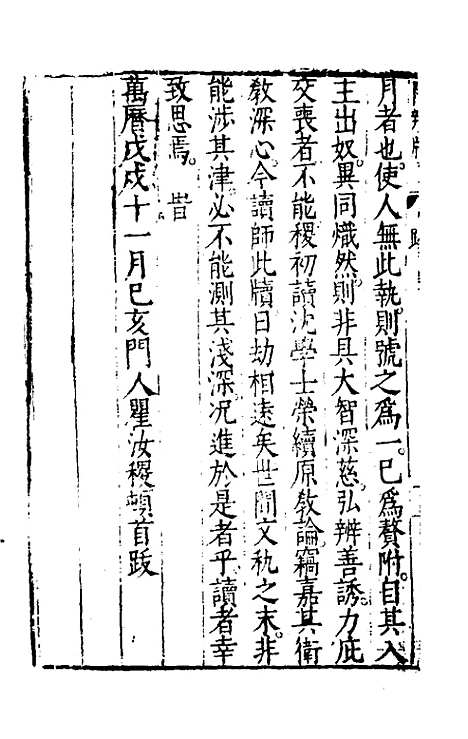 月者也。使人無此執。則號之為一。已為贅附。自其入
主出奴。異同熾然。則非具大智深慈。弘辨善誘。力庇
交喪者不能。稷初讀沈學士榮續原教論。竊嘉其衛
教深心。今讀師此牘。日劫相遠矣。世間文執之末。非
能涉其津。必不能測其淺深。況進於是者乎。讀者幸
致思焉。旹
萬曆戊戌十一月己亥門人瞿汝稷頓首跋